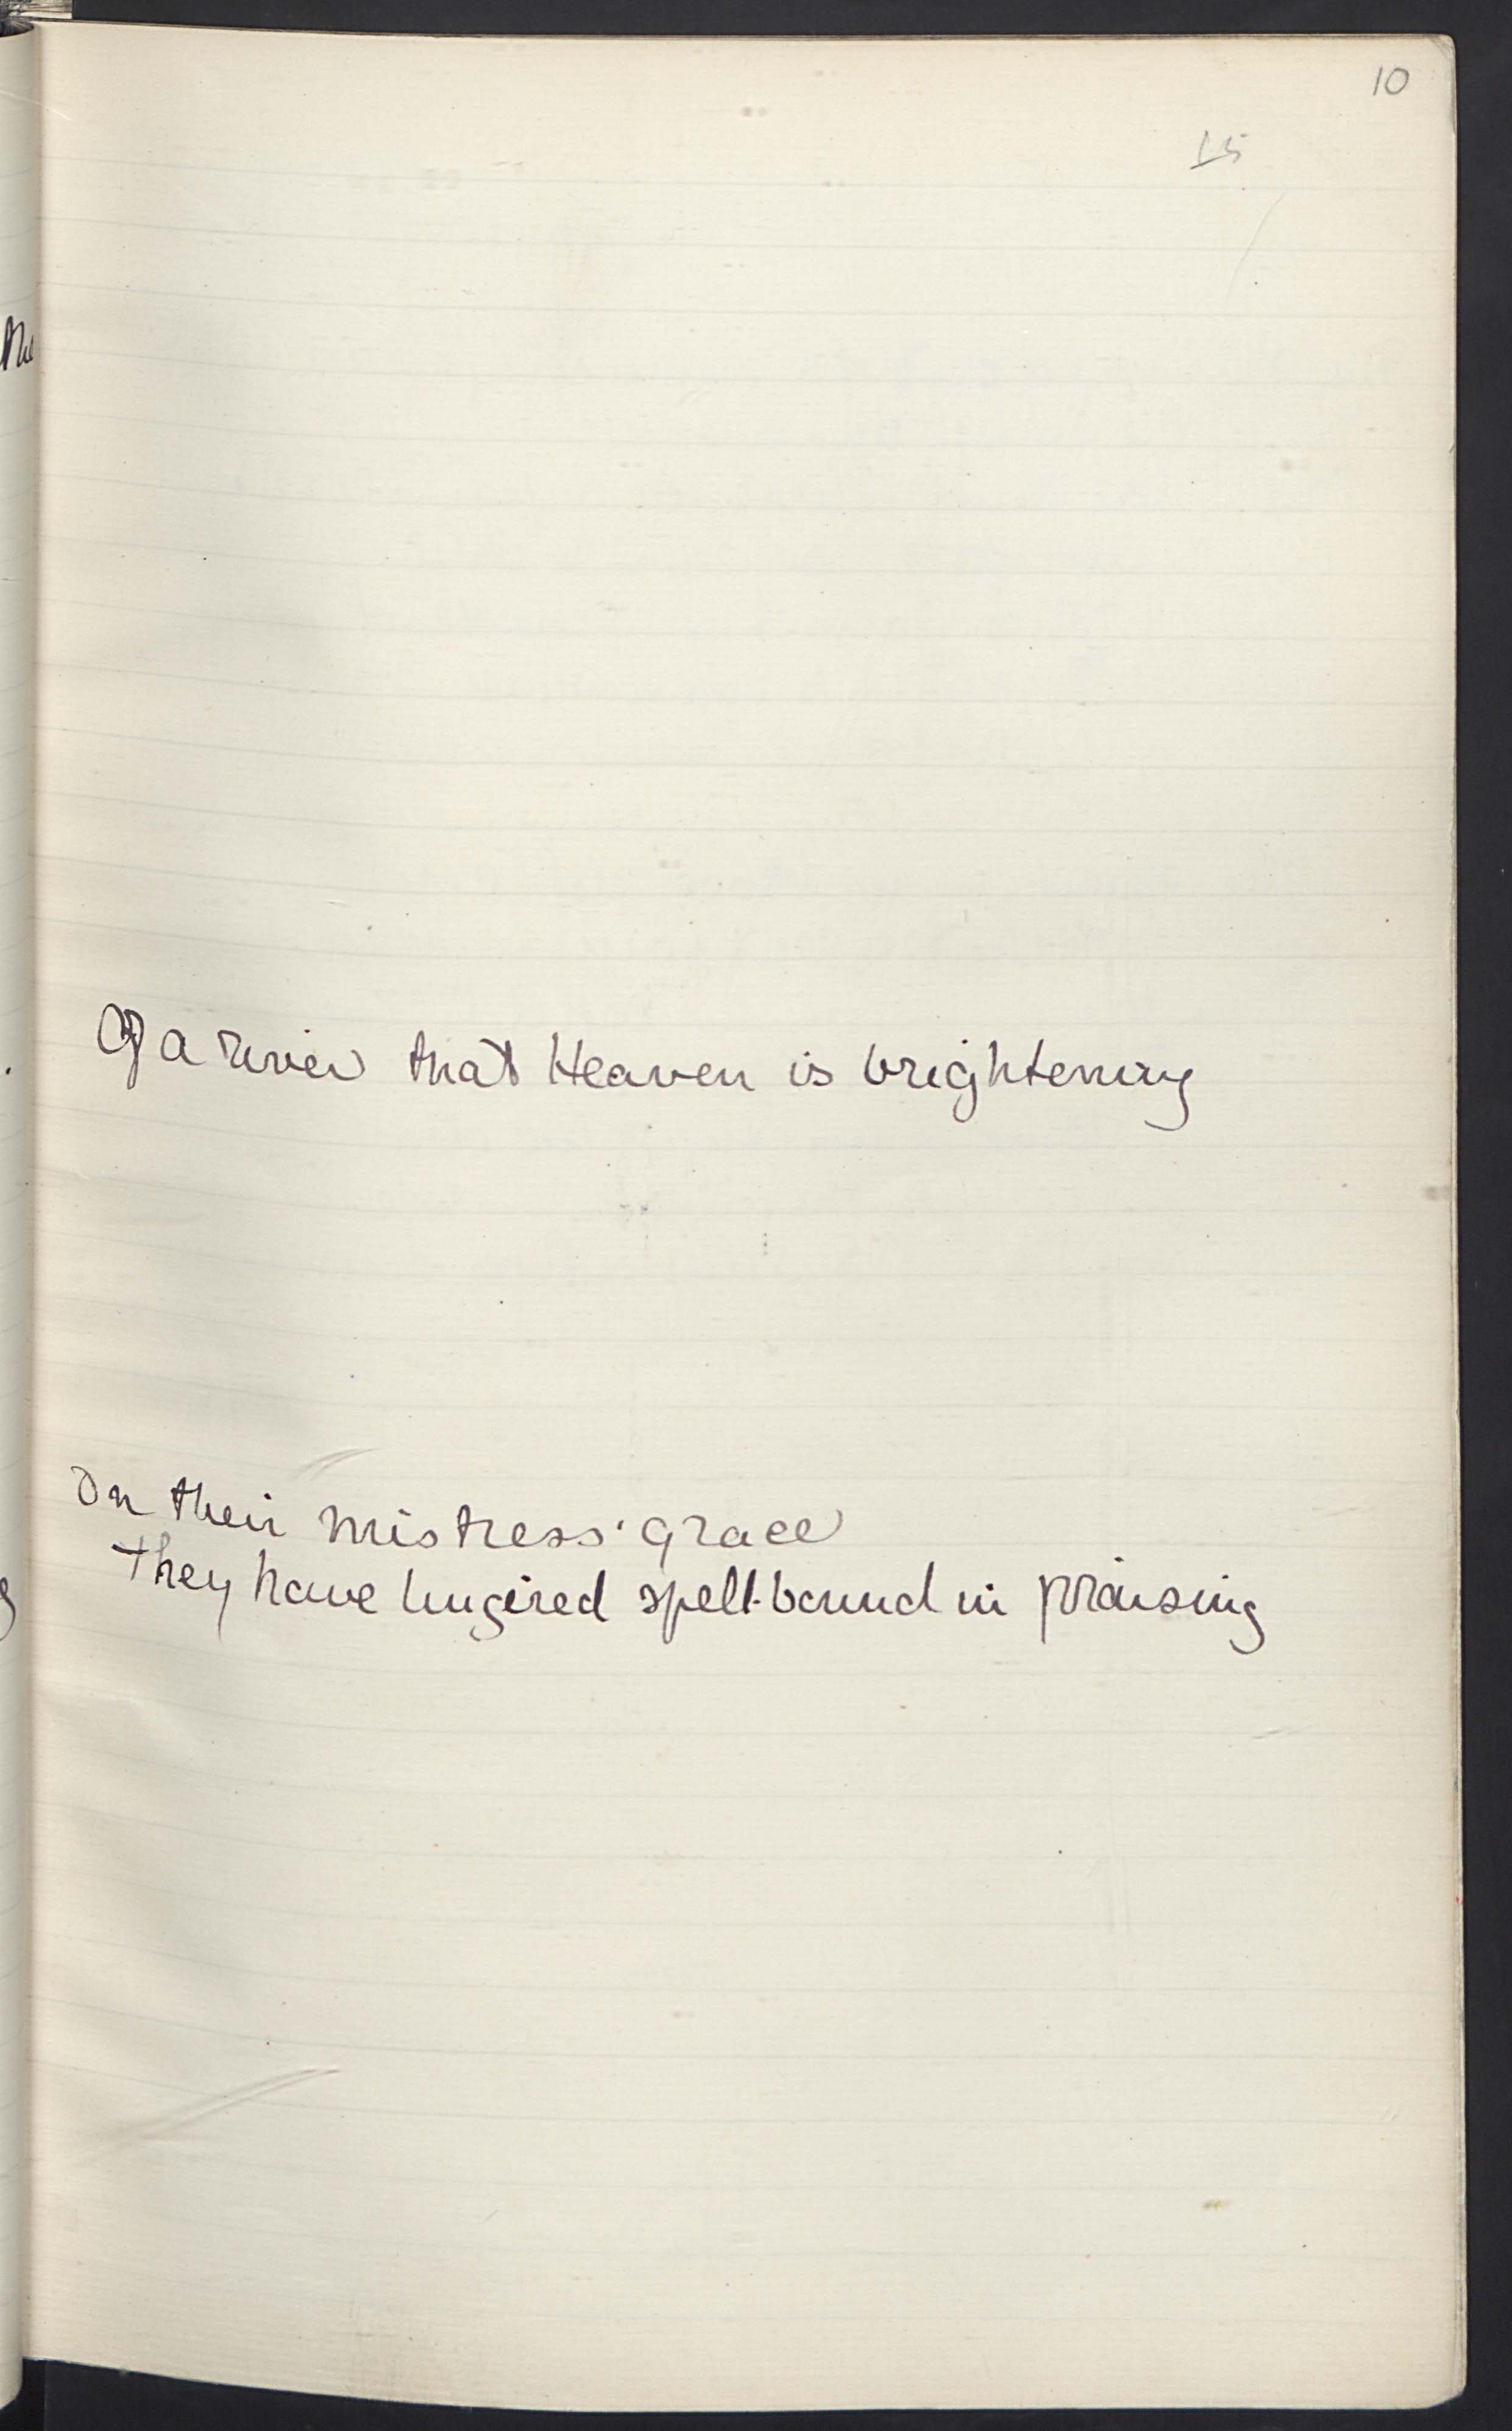 10
15
Of a river that Heaven is brightening
On their mistress' grace
They have lingered spell-bound in praising